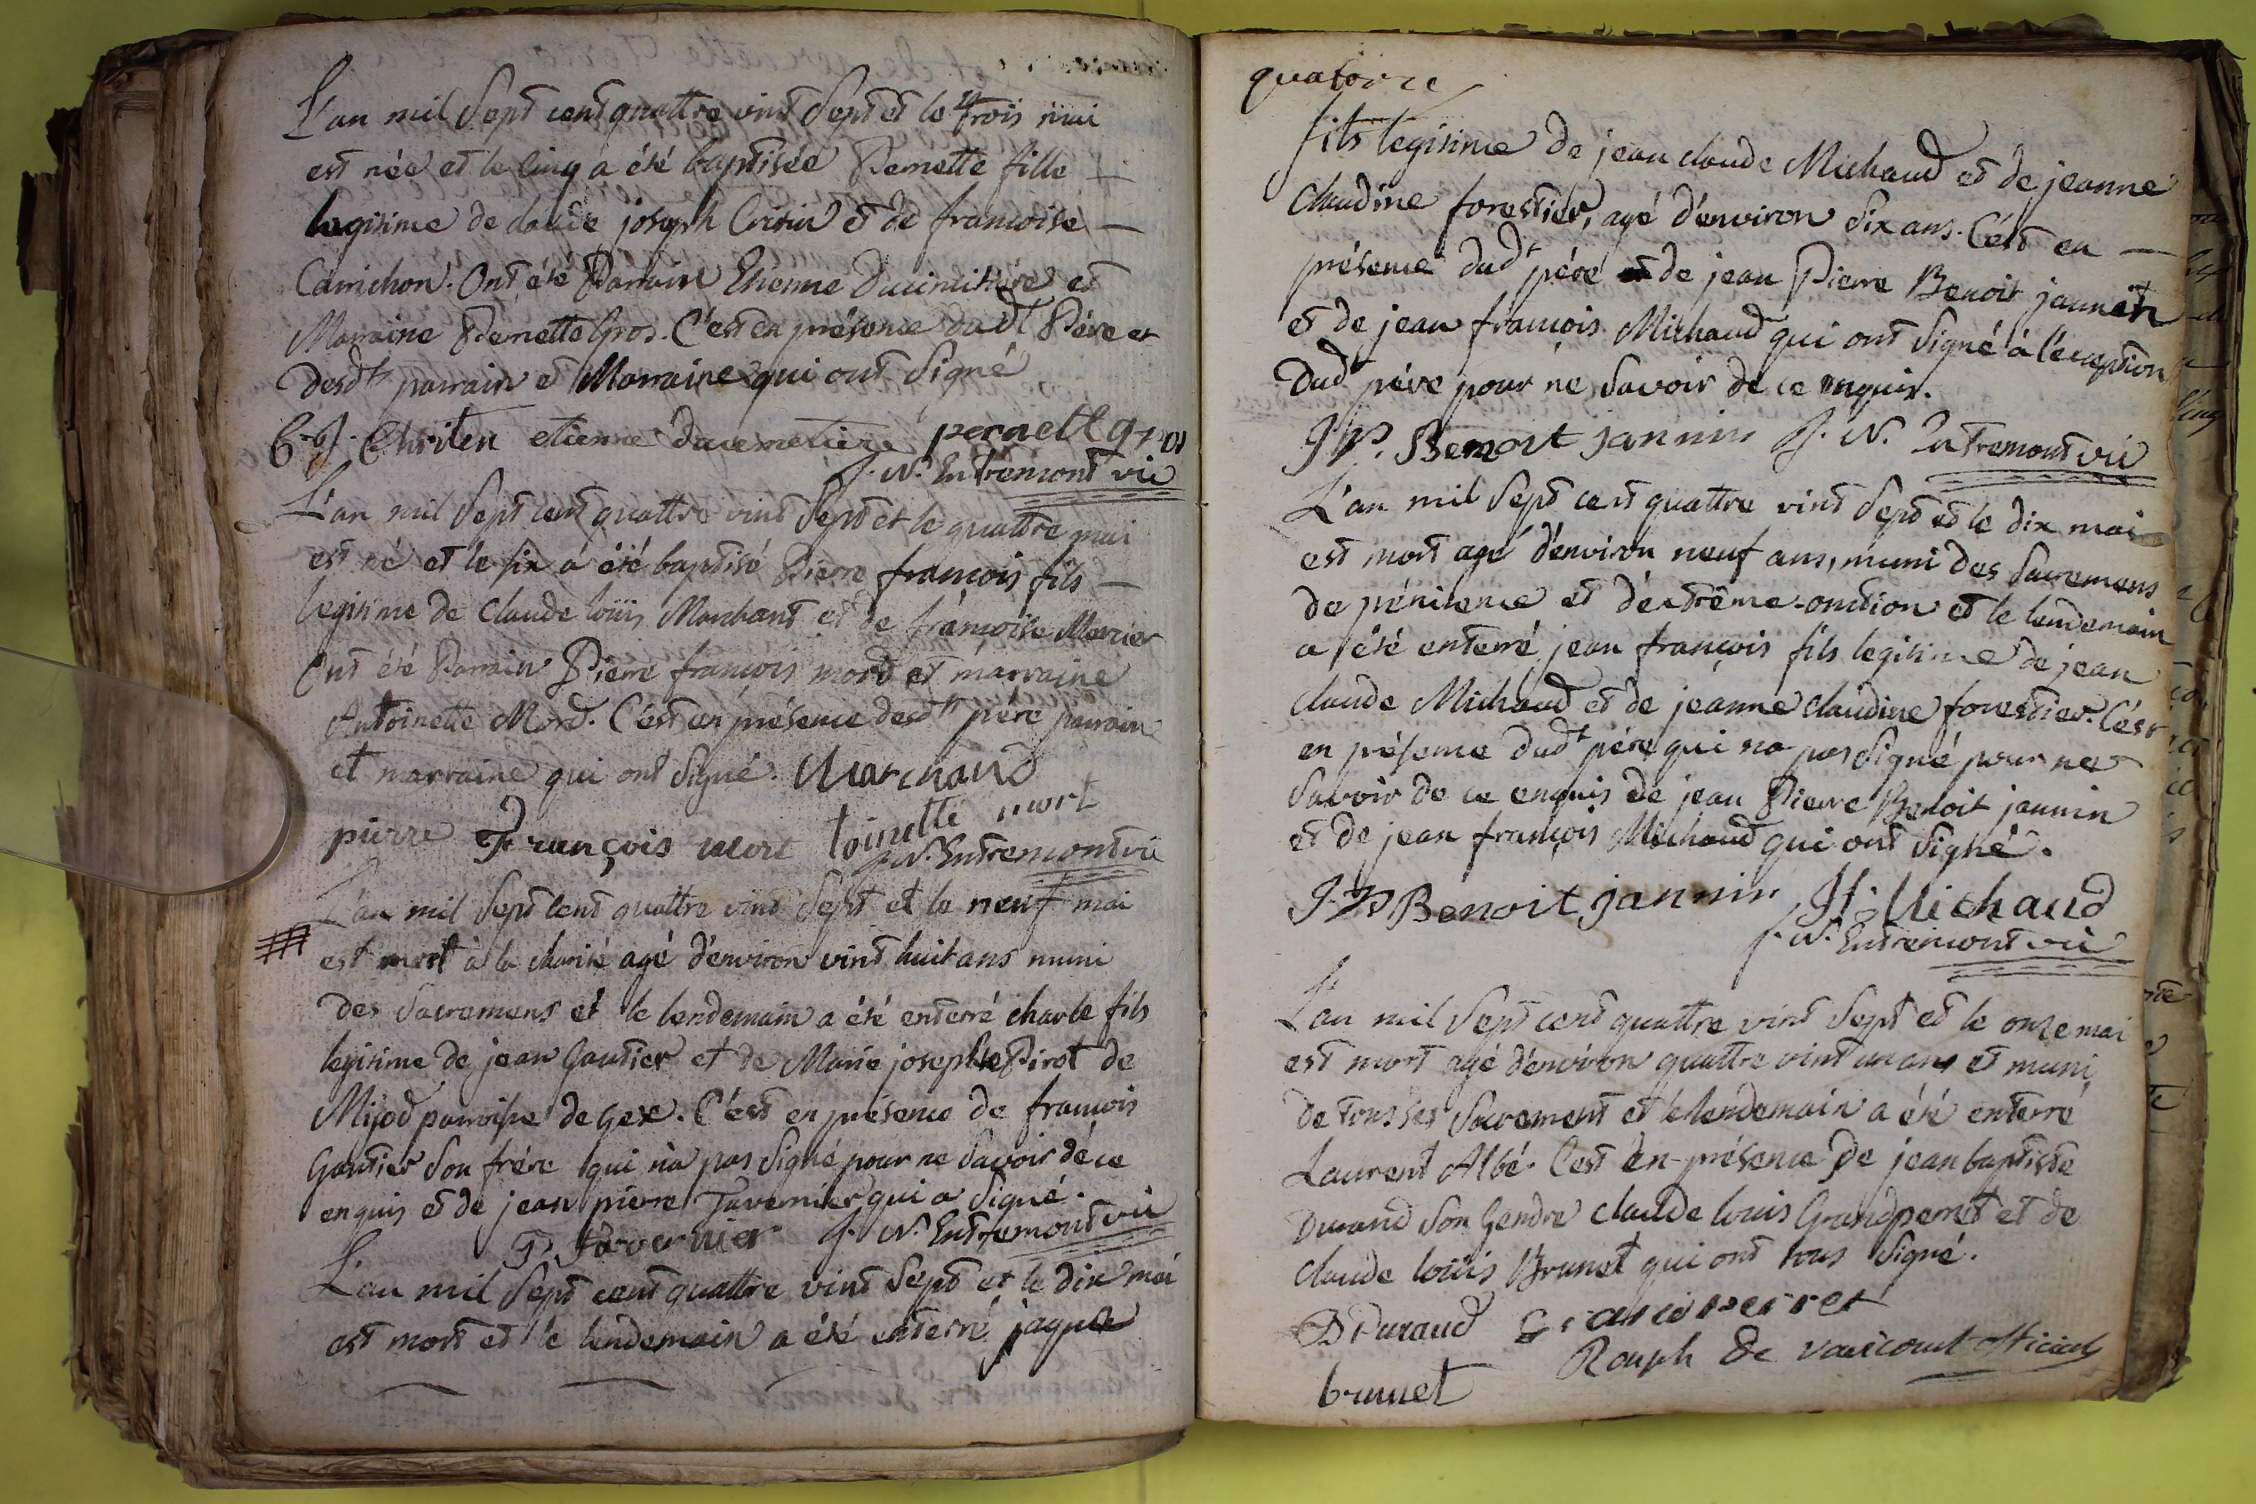 L'an mil Sept cent quattre vint Sept et le trois mai
est née et le cinq a été baptisée Pernette fille
legitime de claude joseph Critin et de francoise
Camichon. Ont été Parrain Etienne Ducimitiére et
Marraine Pernette Gros. C'est en présence dudt Pére et
desdts parrain et Marraine qui ont Signé
C. J. Chriten etienne ducemetiere pernett gros
j. N. Entremont vic
L'an mil Sept cent quattre vint Sept et le quattre mai
est né et le six a été baptisé Pierre francois fils
legitime de Claude loüis Marchant et de francoise Mercier
Ont été Parrain Pierre francois mord et marraine
Antoinette Mord. C'est en présence desdts pére parrain
et marraine qui ont signé. Marchand
pierre François mort toinette mort
j. N. Entremont vic
L'an mil Sept cent quattre vint Sept et le neuf mai
est mort à la charité agé d'environ vint huit ans muni
des Sacremens et le lendemain a été enterré charle fils
legitime de jean Gautier et de Marie josephte Pirot de
Mijod parroisse de gex. C'est en présence de francois
Gautier Son frére qui n'a pas Signé pour ne Savoir dé ce
enquis et de jean pierre Tavernier qui a Signé.
P. tavernier j. N. Entremont vic
L'an mil Sept cent quattre vint Sept et le dix mai
est mort et le lendemain a été enterré jaque
quatorze
fils legitime de jean claude Michaud et de jeanne
Claudine forestier, agé d'environ Six ans. C'ést en
présence dudt pére et de jean Pierre Benoit jannin
et de jean francois Michaud qui ont Signé à l'exception
Dudt pére pour né Savoir de ce enquis.
J P. Benoit jannin j. N. Entremont vic
L'an mil Sept cent quattre vint Sept et le dix mai
est mort agé d'environ neuf ans, muni des Sacremens
de pénitence et d'extrême-onction et le lendemain
a été enterré jean françois fils legitime de jean
claude Michaud et de jeanne claudine forestier. C'ést
en présence dudt pére qui na pas Signé pour ne
Savoir de ce enquis de jean Pierre Benoit jannin
et de jean françois Michaud qui ont Signé.
J P Benoit jannin Jf. Michaud
j. N. Entremont vic
L'an mil Sept cent quattre vint Sept et le onze mai
est mort agé d'environ quattre vint un ans et muni
de tous ses Sacrement et le lendemain a été enterré
Laurent Albé. C'est en présence de jean baptiste
Durand Son Gendre claude louis Grandperret et de
claude loüis Brunet qui ont tous Signé.
B Duraud Grandperret
Rouph De varicourt official
brunet